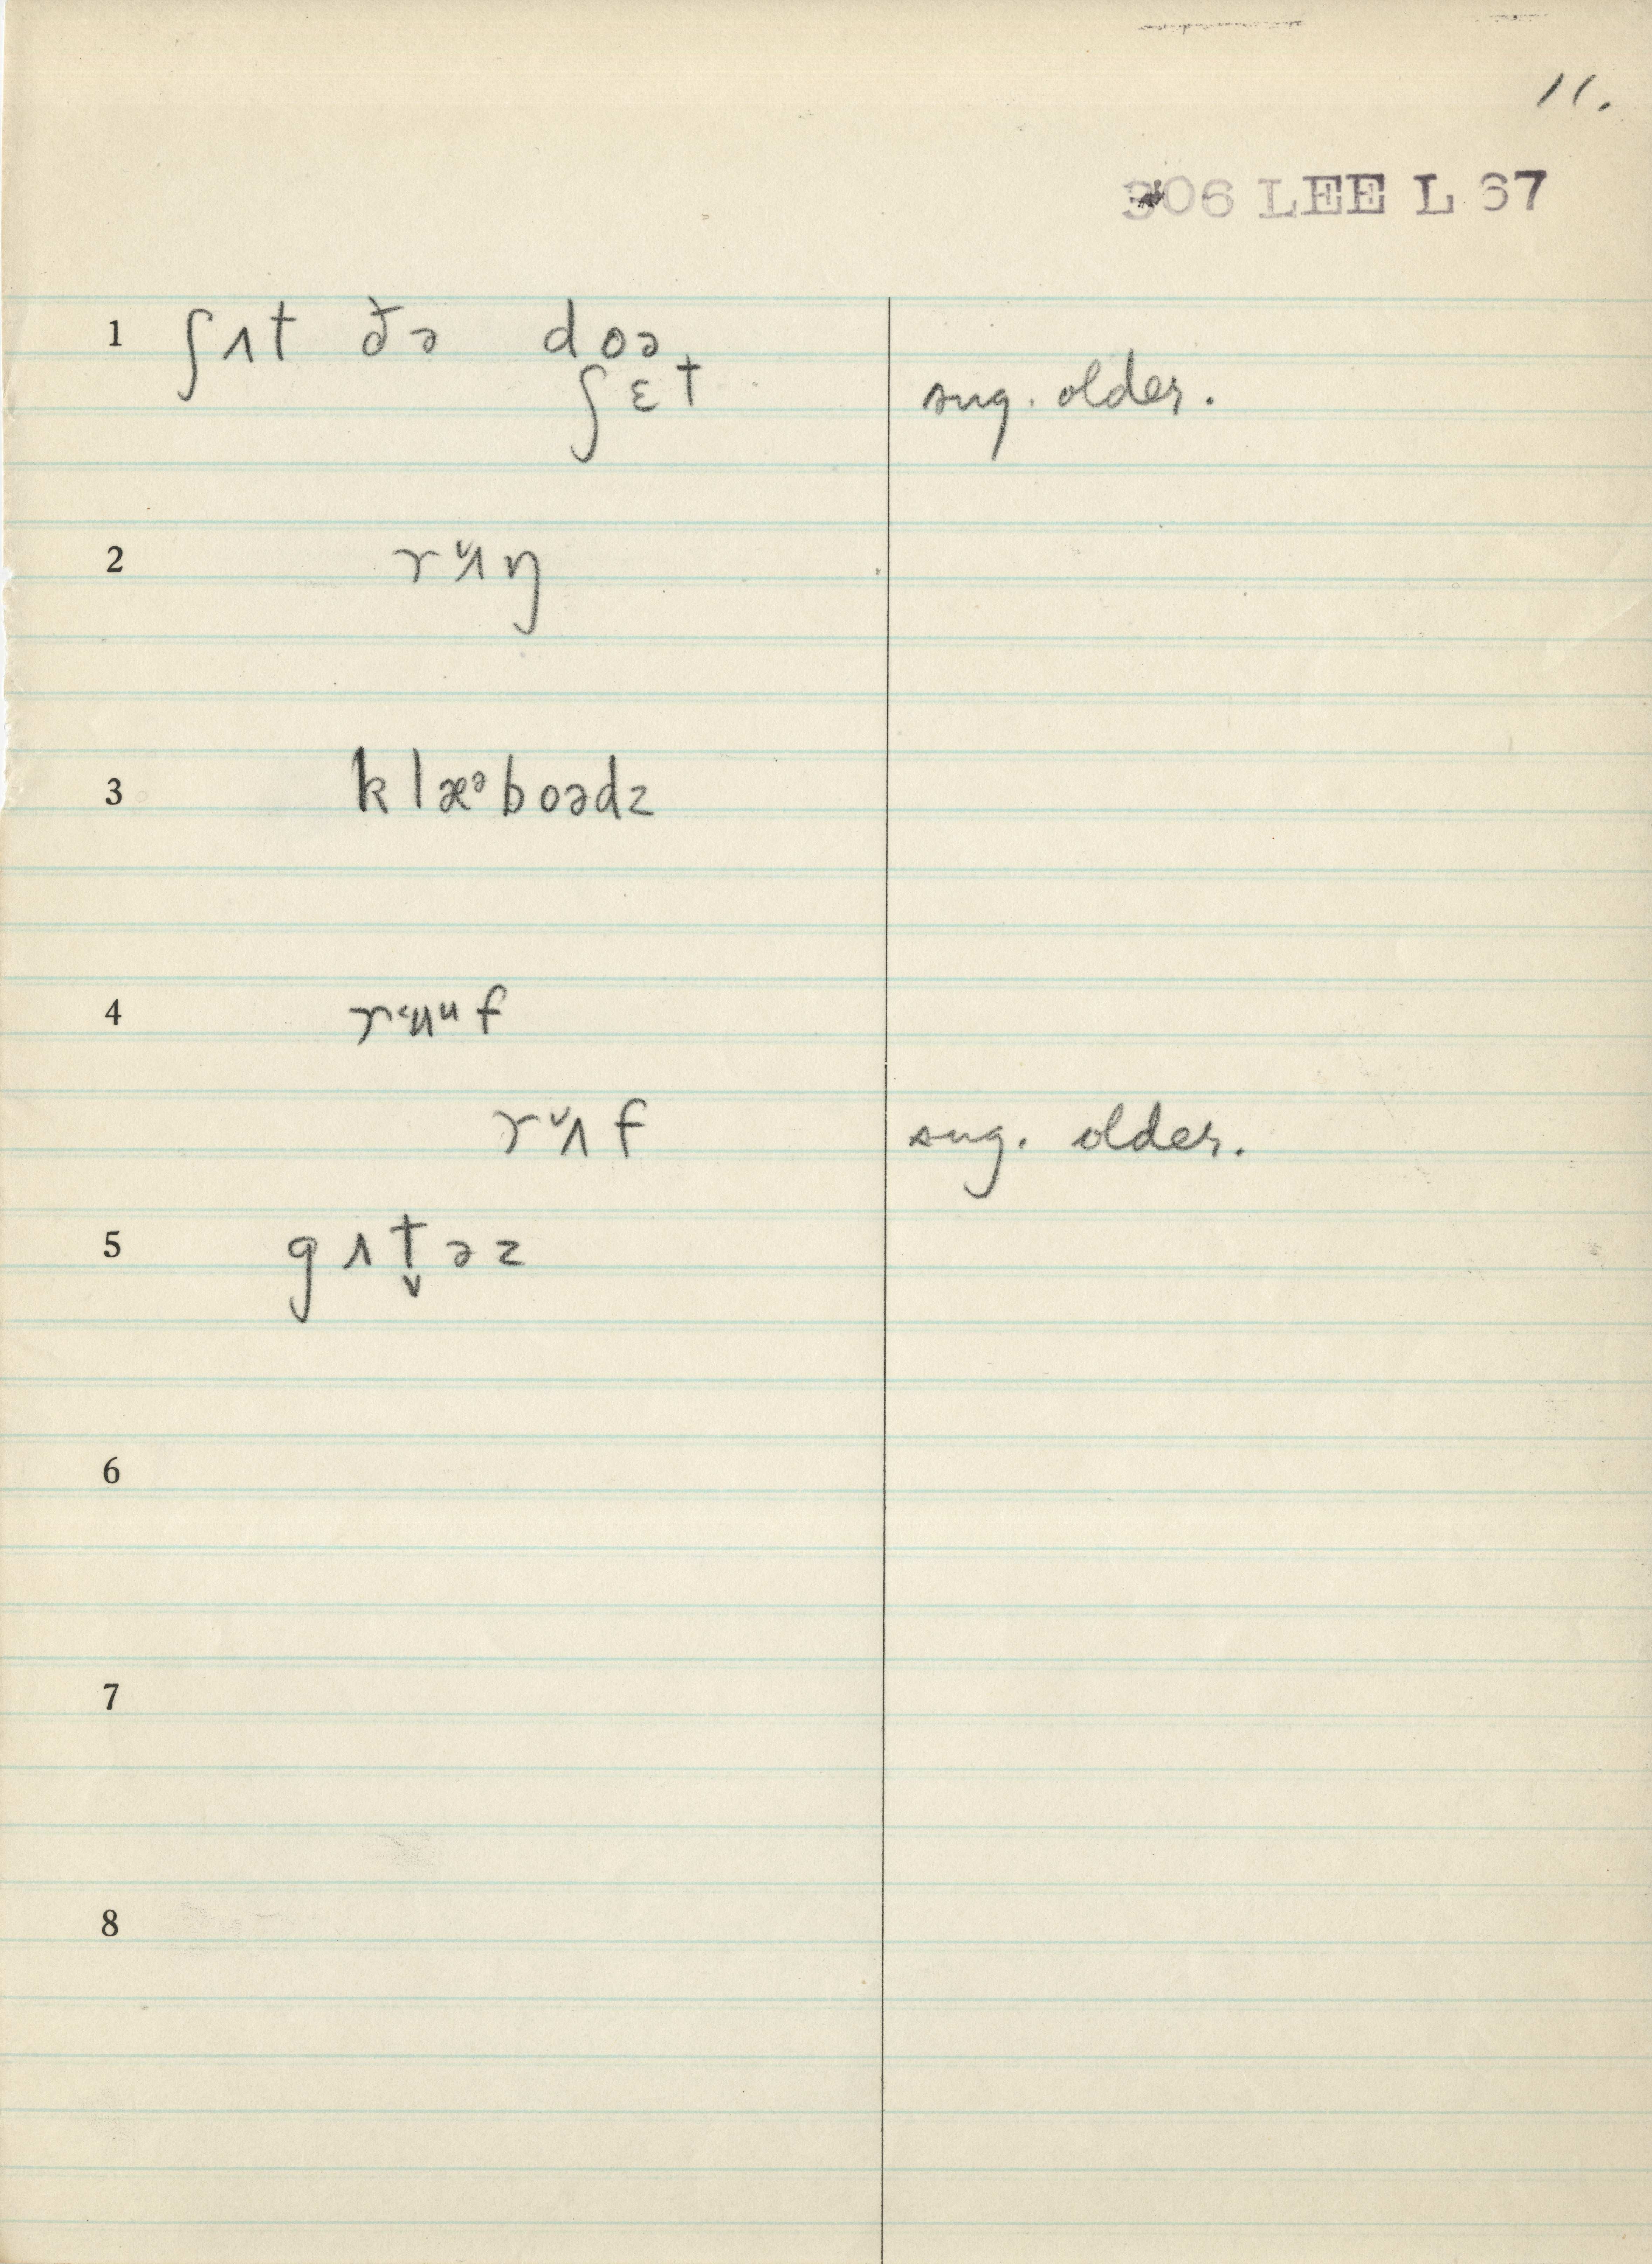 11.
306 LEE L 67
1 ʃʌt ðə doə
ʃɛt sug. older.
2 rʌ̆ŋ
3 klæᵊboədz
4 rʉᵘf
rʌ̆f sug. older.
5 gʌt̬əz
6
7
8